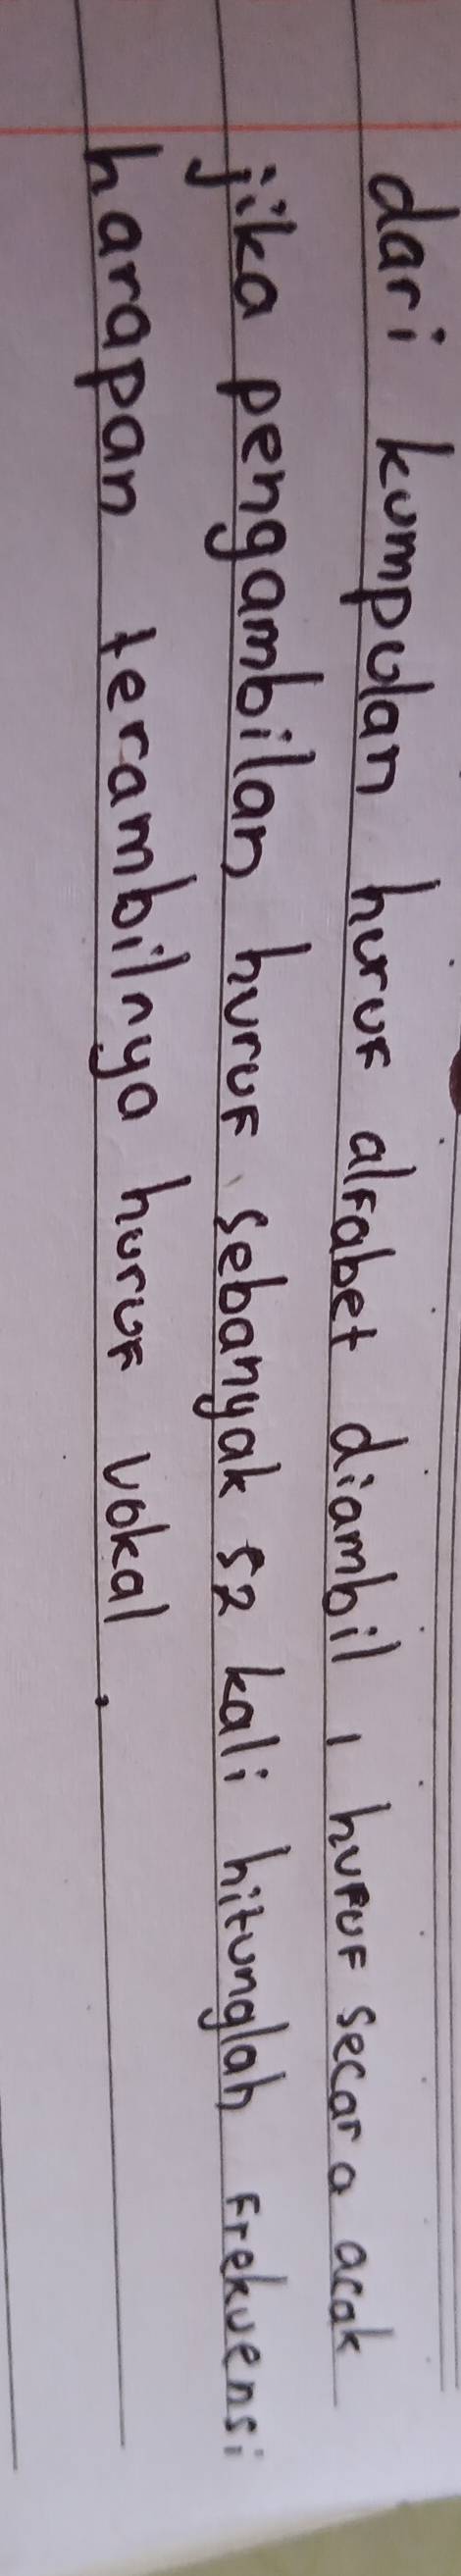 dari kumpulan huruf alfabet diambil 1 huruf secara acak
jika pengambilan huruf sebanyak 52 kali hitunglah Frekuensi
harapan terambilnya huruf vokal.